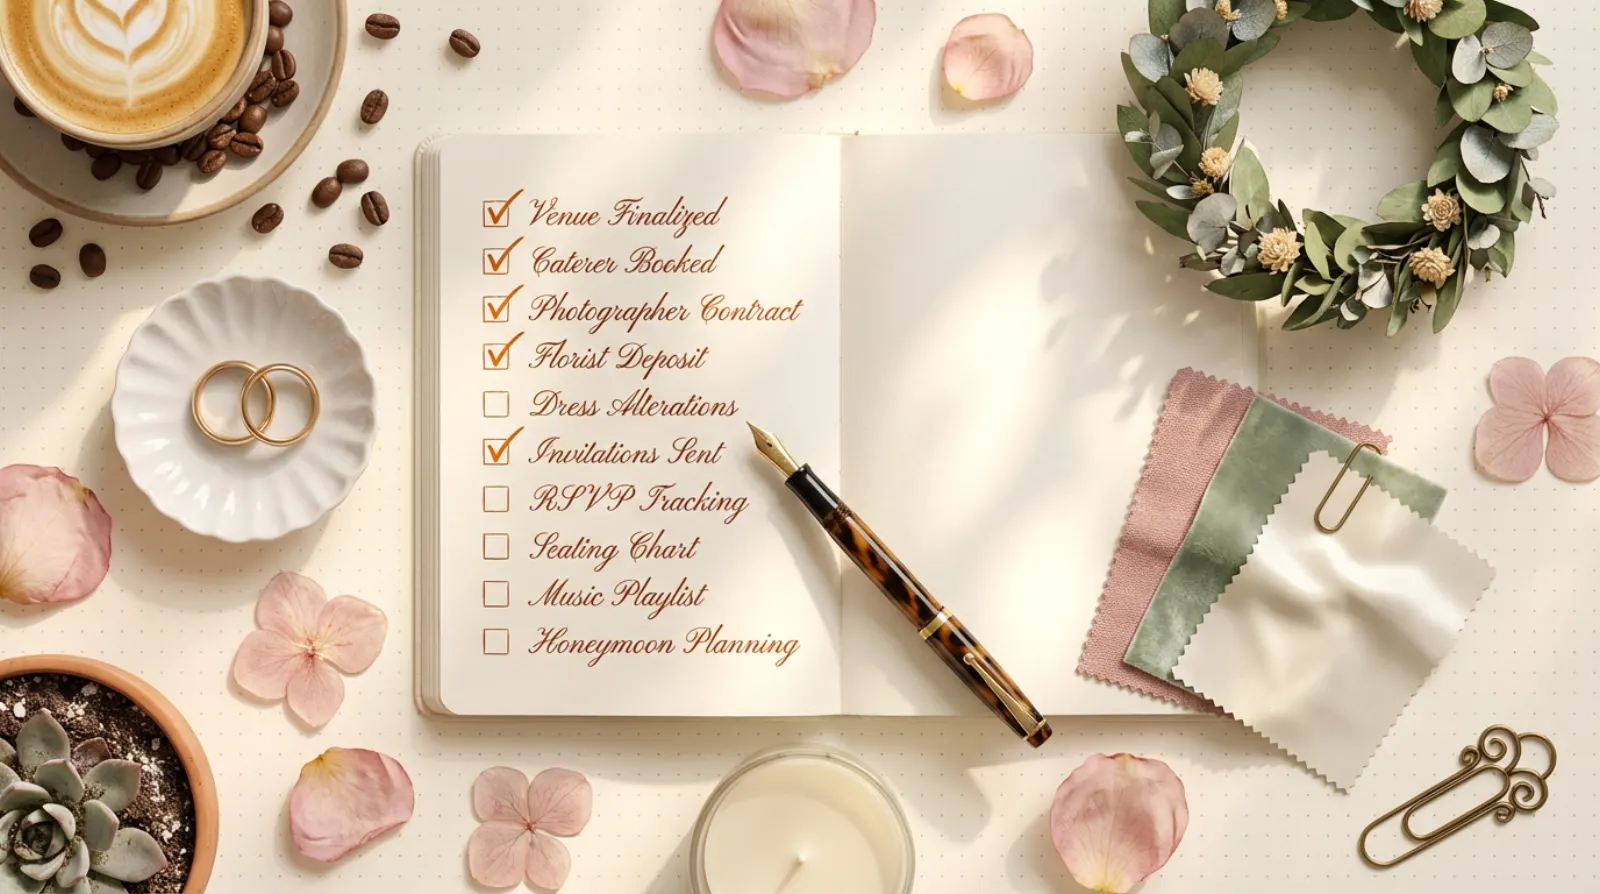 Venue Finalized
Caterer Booked
Photographer Contract
Florist Deposit
Dress Alterations
Invitations Sent
RSVP Tracking
Seating Chart
Music Playlist
Honeymoon Planning